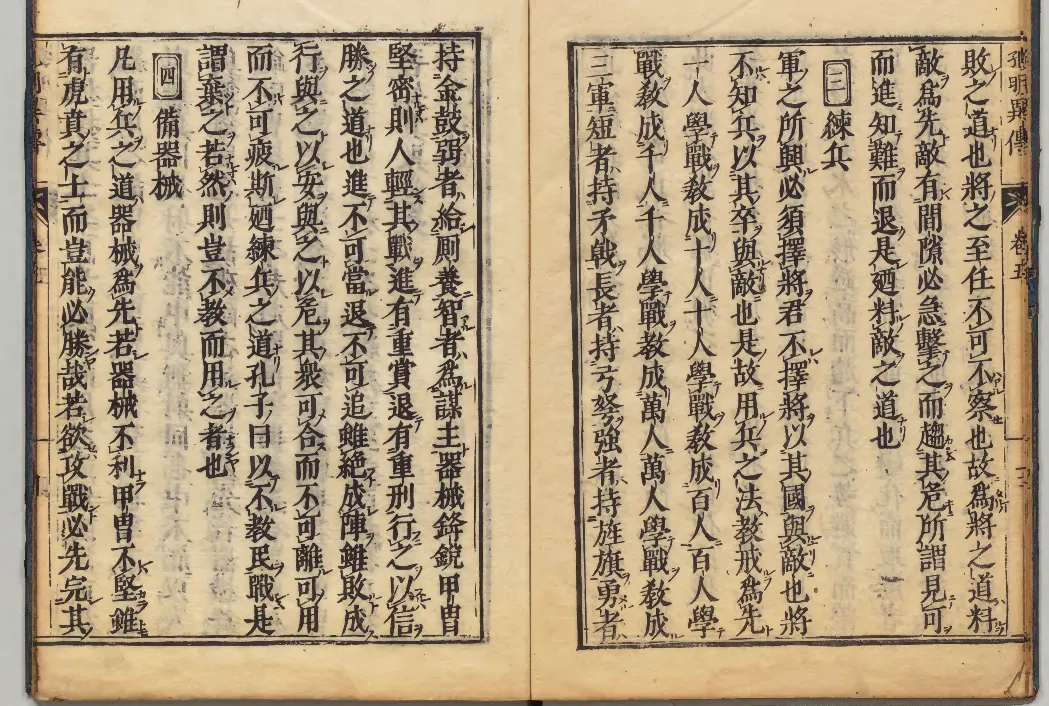 孔明異傳 卷五
敗之道也將之至任不可不察也故爲將之道料
敵爲先敵有間隙必急擊之而趨其危所謂見可
而進知難而退是廼料敵之道也
三 練兵
軍之所興必須擇將君不擇將以其國與敵也將
不知兵以其卒與敵也是故用兵之法教戒爲先
一人學戰教成十人十人學戰教成百人百人學
戰教成千人千人學戰教成萬人萬人學戰教成
三軍短者持矛戟長者持弓弩強者持旌旗勇者
持金鼓弱者給厠養智者爲謀主器械鋒銳甲曽
堅密則人輕其戰進有重賞退有重刑行之以信
勝之道也進不可當退不可追雖絶成陣雖敗成
行與之以安與之以危其衆可合而不可離可用
而不可疲斯廼練兵之道孔子曰以不教民戰是
謂棄之若然則豈不教而用之者也
四 備器械
凡用兵之道器械爲先若器械不利甲曽不堅雖
有虎賁之士而豈能必勝哉若欲攻戰必先完其